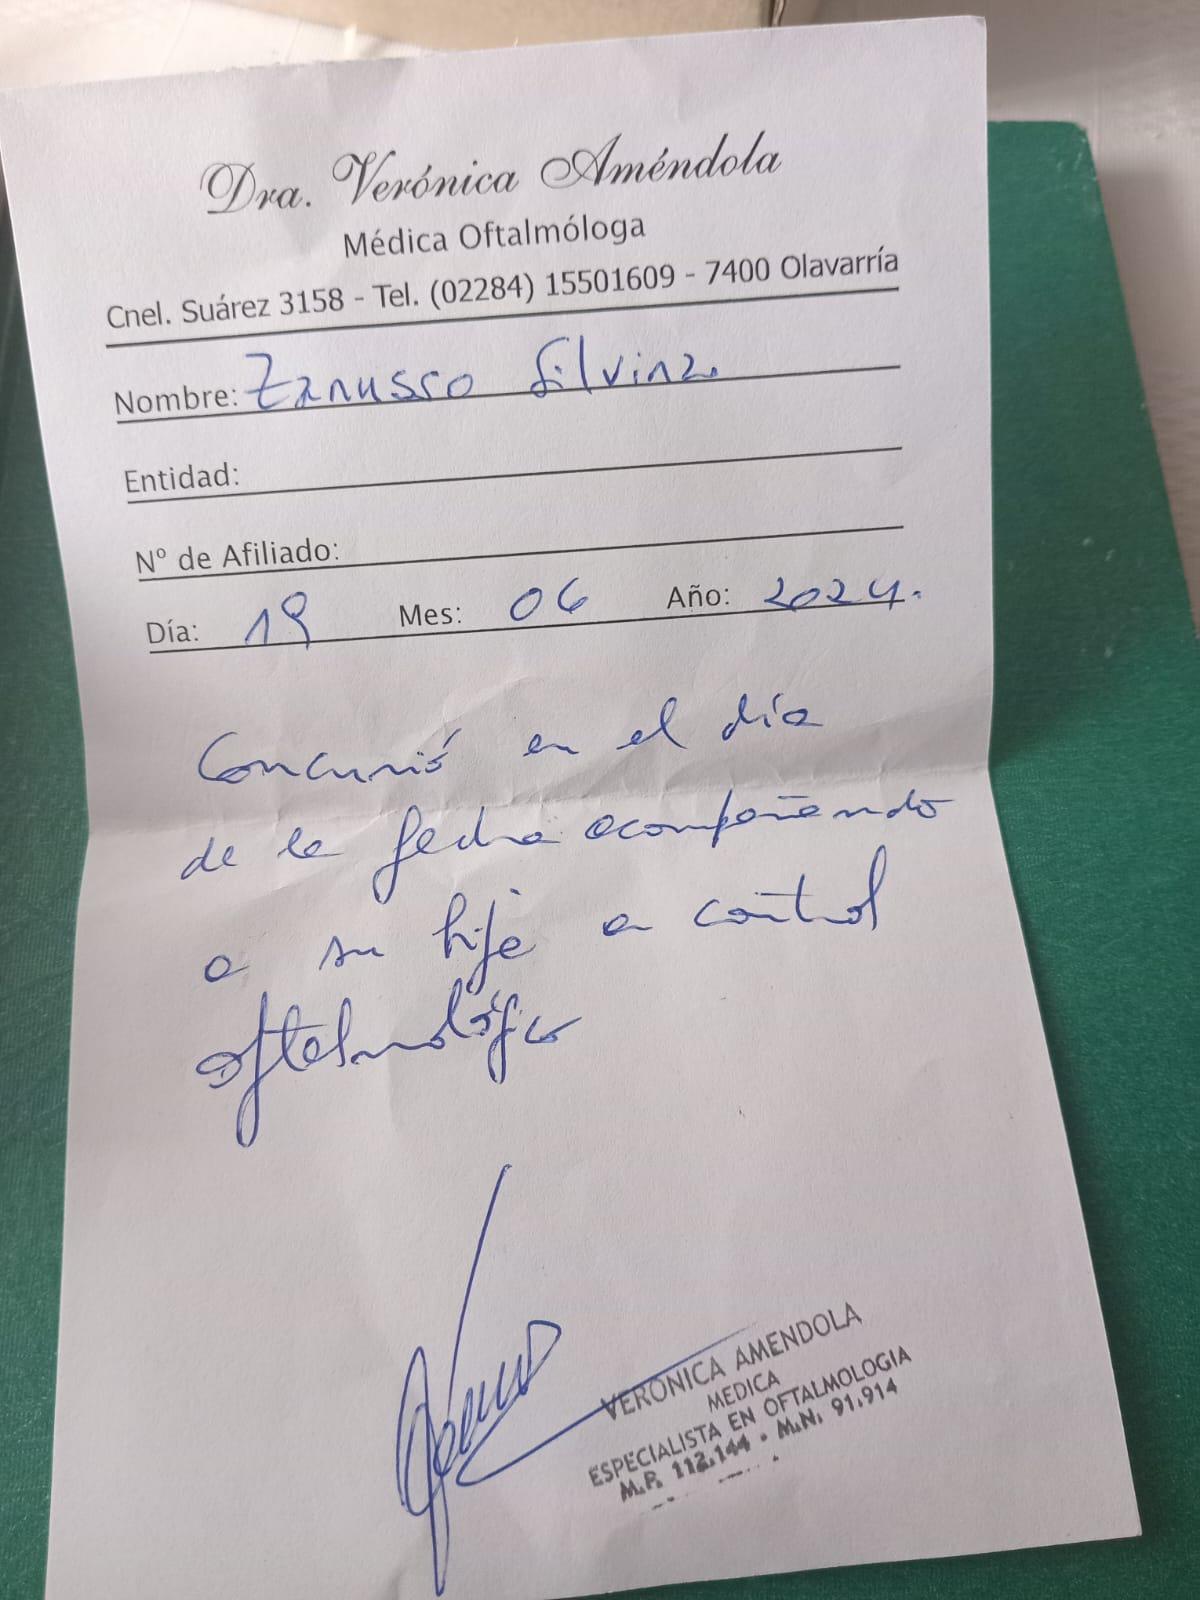 Dra. Verónica Améndola
Médica Oftalmóloga
Cnel. Suárez 3158 - Tel. (02284) 15501609 - 7400 Olavarría
Nombre: Zanusso Silvina.
Entidad:
Nº de Afiliado:
Día: 19 Mes: 06 Año: 2024.
Concurrió en el día
de la fecha acompañando
a su hija a control
oftalmológico
VERONICA AMENDOLA
MEDICA
ESPECIALISTA EN OFTALMOLOGIA
M.P. 112.144 - M.N. 91.914